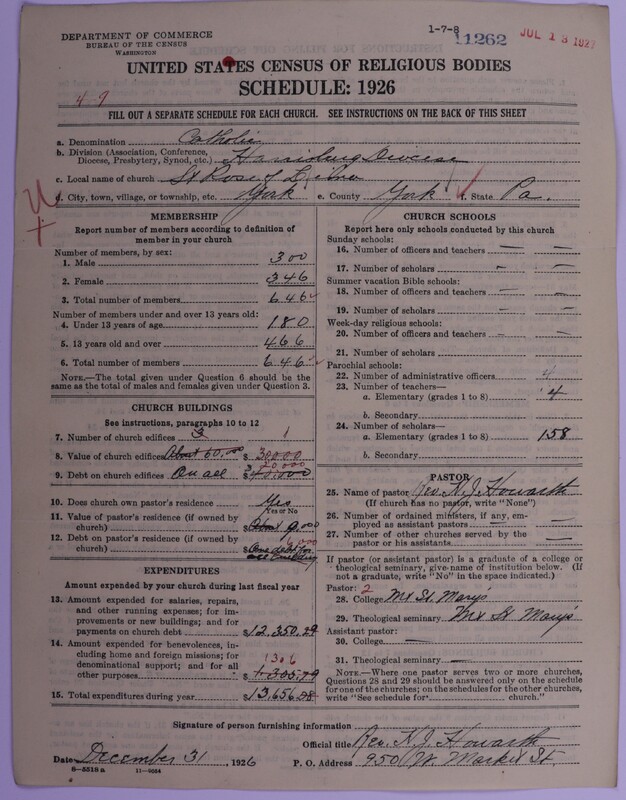 DEPARTMENT OF COMMERCE
BUREAU OF THE CENSUS
WASHINGTON
1-7-8
11262
JUL 13 1927
UNITED STATES CENSUS OF RELIGIOUS BODIES
SCHEDULE: 1926
4 9
FILL OUT A SEPARATE SCHEDULE FOR EACH CHURCH. SEE INSTRUCTIONS ON THE BACK OF THIS SHEET
a. Denomination Catholic
b. Division (Association, Conference,
Diocese, Presbytery, Synod, etc.) Harrisburg Diocese
c. Local name of church St Rose of Lima
d. City, town, village, or township, etc. York e. County York f. State Pa.
MEMBERSHIP
Report number of members according to definition of
member in your church
Number of members, by sex:
1. Male 300
2. Female 346
3. Total number of members 646
Number of members under and over 13 years old:
4. Under 13 years of age 180
5. 13 years old and over 466
6. Total number of members 646
NOTE.—The total given under Question 6 should be the
same as the total of males and females given under Question 3.
CHURCH BUILDINGS
See instructions, paragraphs 10 to 12
7. Number of church edifices 3 1
8. Value of church edifices About 60,000 $ 30000
20,000
9. Debt on church edifices On all $
10. Does church own pastor's residence Yes
Yes or No
11. Value of pastor's residence (if owned by
church) $ About 9,000
12. Debt on pastor's residence (if owned by
church) $ One debt for all building
EXPENDITURES
Amount expended by your church during last fiscal year
13. Amount expended for salaries, repairs,
and other running expenses; for im-
provements or new buildings; and for
payments on church debt $12,350.29
14. Amount expended for benevolences, in-
cluding home and foreign missions; for
denominational support; and for all
1306
other purposes $ 1,305.79
15. Total expenditures during year $13,656.28
CHURCH SCHOOLS
Report here only schools conducted by this church
Sunday schools:
16. Number of officers and teachers — —
17. Number of scholars - -
Summer vacation Bible schools:
18. Number of officers and teachers — —
19. Number of scholars - -
Week-day religious schools:
20. Number of officers and teachers — —
21. Number of scholars —
Parochial schools:
22. Number of administrative officers 4
23. Number of teachers—
a. Elementary (grades 1 to 8) 4
b. Secondary
24. Number of scholars—
a. Elementary (grades 1 to 8) 158
b. Secondary
PASTOR
25. Name of pastor Rev. H. J. Howarth
(If church has no pastor, write "None")
26. Number of ordained ministers, if any, em-
ployed as assistant pastors — —
27. Number of other churches served by the
pastor or his assistants —
If pastor (or assistant pastor) is a graduate of a college or
theological seminary, give name of institution below. (If
not a graduate, write "No" in the space indicated.)
Pastor: 2
28. College Mt St. Mary's
29. Theological seminary Mt St Mary's
Assistant pastor:
30. College —
31. Theological seminary —
NOTE.—Where one pastor serves two or more churches,
Questions 28 and 29 should be answered only on the schedule
for one of the churches; on the schedules for the other churches,
write "See schedule for church."
Signature of person furnishing information
Official title Rev. H. J. Howarth
Date December 31, 1926 P. O. Address 950 W. Market St.
8-5518a 11-9054